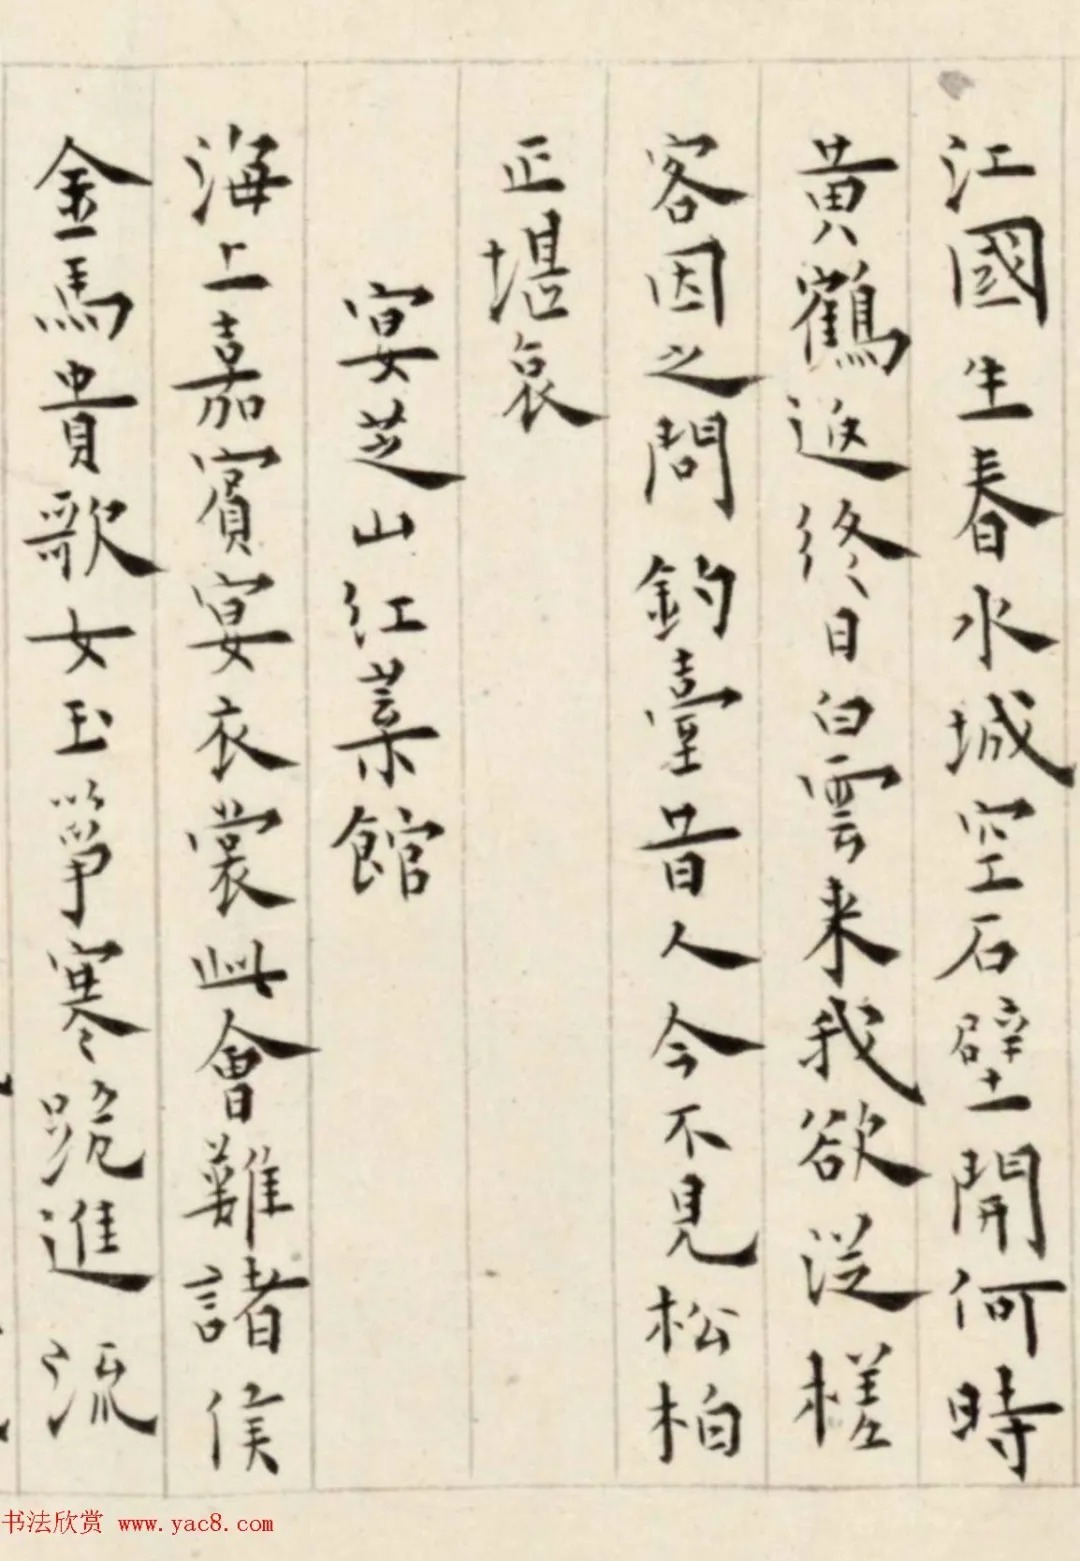 江國生春水城空石壁開何時
黄鶴返終日白雲來我欲泛槎
客因之問釣臺昔人今不見松柏
正堪哀
宴芝山紅葉館
海上嘉賓宴衣裳此會難諸侯
金馬貴歌女玉箏寒跪進流
书法欣赏 www.yac8.com